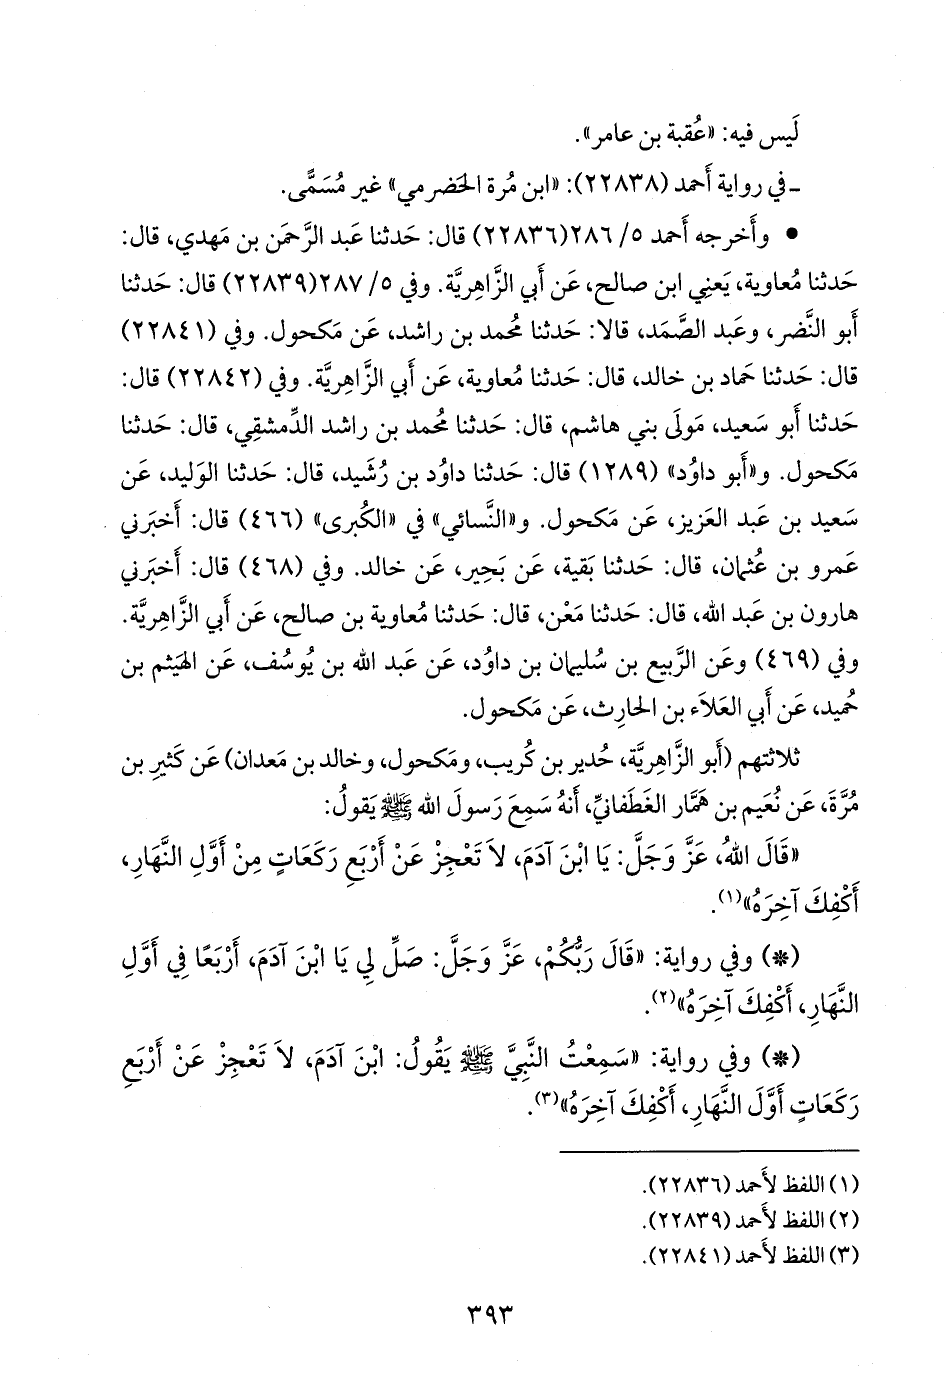 لَيس فيه: «عُقبة بن عامر».
ـ في رواية أَحمد (٢٢٨٣٨): «ابن مُرة الحَضرمي» غير مُسَمًّى.
• وأَخرجه أَحمد ٥/ ٢٨٦(٢٢٨٣٦) قال: حَدثنا عَبد الرَّحمَن بن مَهدي، قال:
حَدثنا مُعاوية، يَعنِي ابن صالح، عَن أَبي الزَّاهِريَّة. وفي ٥/ ٢٨٧(٢٢٨٣٩) قال: حَدثنا
أَبو النَّضر، وعَبد الصَّمَد، قالا: حَدثنا مُحمد بن راشد، عَن مَكحول. وفي (٢٢٨٤١)
قال: حَدثنا حَماد بن خالد، قال: حَدثنا مُعاوية، عَن أَبي الزَّاهِريَّة. وفي (٢٢٨٤٢) قال:
حَدثنا أَبو سَعيد، مَولَى بني هاشم، قال: حَدثنا مُحمد بن راشد الدِّمشقِي، قال: حَدثنا
مَكحول. و«أَبو داوُد» (١٢٨٩) قال: حَدثنا داوُد بن رُشَيد، قال: حَدثنا الوَليد، عَن
سَعيد بن عَبد العَزيز، عَن مَكحول. و«النَّسائي» في «الكُبرى» (٤٦٦) قال: أَخبَرني
عَمرو بن عُثمان، قال: حَدثنا بَقية، عَن بَحِير، عَن خالد. وفي (٤٦٨) قال: أَخبَرني
هارون بن عَبد الله، قال: حَدثنا مَعْن، قال: حَدثنا مُعاوية بن صالح، عَن أَبي الزَّاهِريَّة.
وفي (٤٦٩) وعَن الرَّبيع بن سُليمان بن داوُد، عَن عَبد الله بن يُوسُف، عَن الهَيثم بن
حُميد، عَن أَبي العَلاَء بن الحارِث، عَن مَكحول.
ثلاثتهم (أَبو الزَّاهِريَّة، حُدير بن كُريب، ومَكحول، وخالد بن مَعدان) عَن كَثيرِ بن
مُرَّةَ، عَن نُعَيم بن هَمَّار الغَطَفانيِّ، أَنهُ سَمِعَ رَسولَ الله ﷺ يَقولُ:
«قَالَ اللهُ، عَزَّ وَجَلَّ: يَا ابْنَ آدَمَ، لاَ تَعْجِزْ عَنْ أَرْبَعِ رَكَعَاتٍ مِنْ أَوَّلِ النَّهَارِ،
أَكْفِكَ آخِرَهُ»(١).
(*) وفي رواية: «قَالَ رَبُّكُمْ، عَزَّ وَجَلَّ: صَلِّ لِي يَا ابْنَ آدَمَ، أَرْبَعًا فِي أَوَّلِ
النَّهَارِ، أَكْفِكَ آخِرَهُ»(٢).
(*) وفي رواية: «سَمِعْتُ النَّبِيَّ ﷺ يَقُولُ: ابْنَ آدَمَ، لاَ تَعْجِزْ عَنْ أَرْبَعِ
رَكَعَاتٍ أَوَّلَ النَّهَارِ، أَكْفِكَ آخِرَهُ»(٣).
(١) اللفظ لأَحمد (٢٢٨٣٦).
(٢) اللفظ لأَحمد (٢٢٨٣٩).
(٣) اللفظ لأَحمد (٢٢٨٤١).
٣٩٣